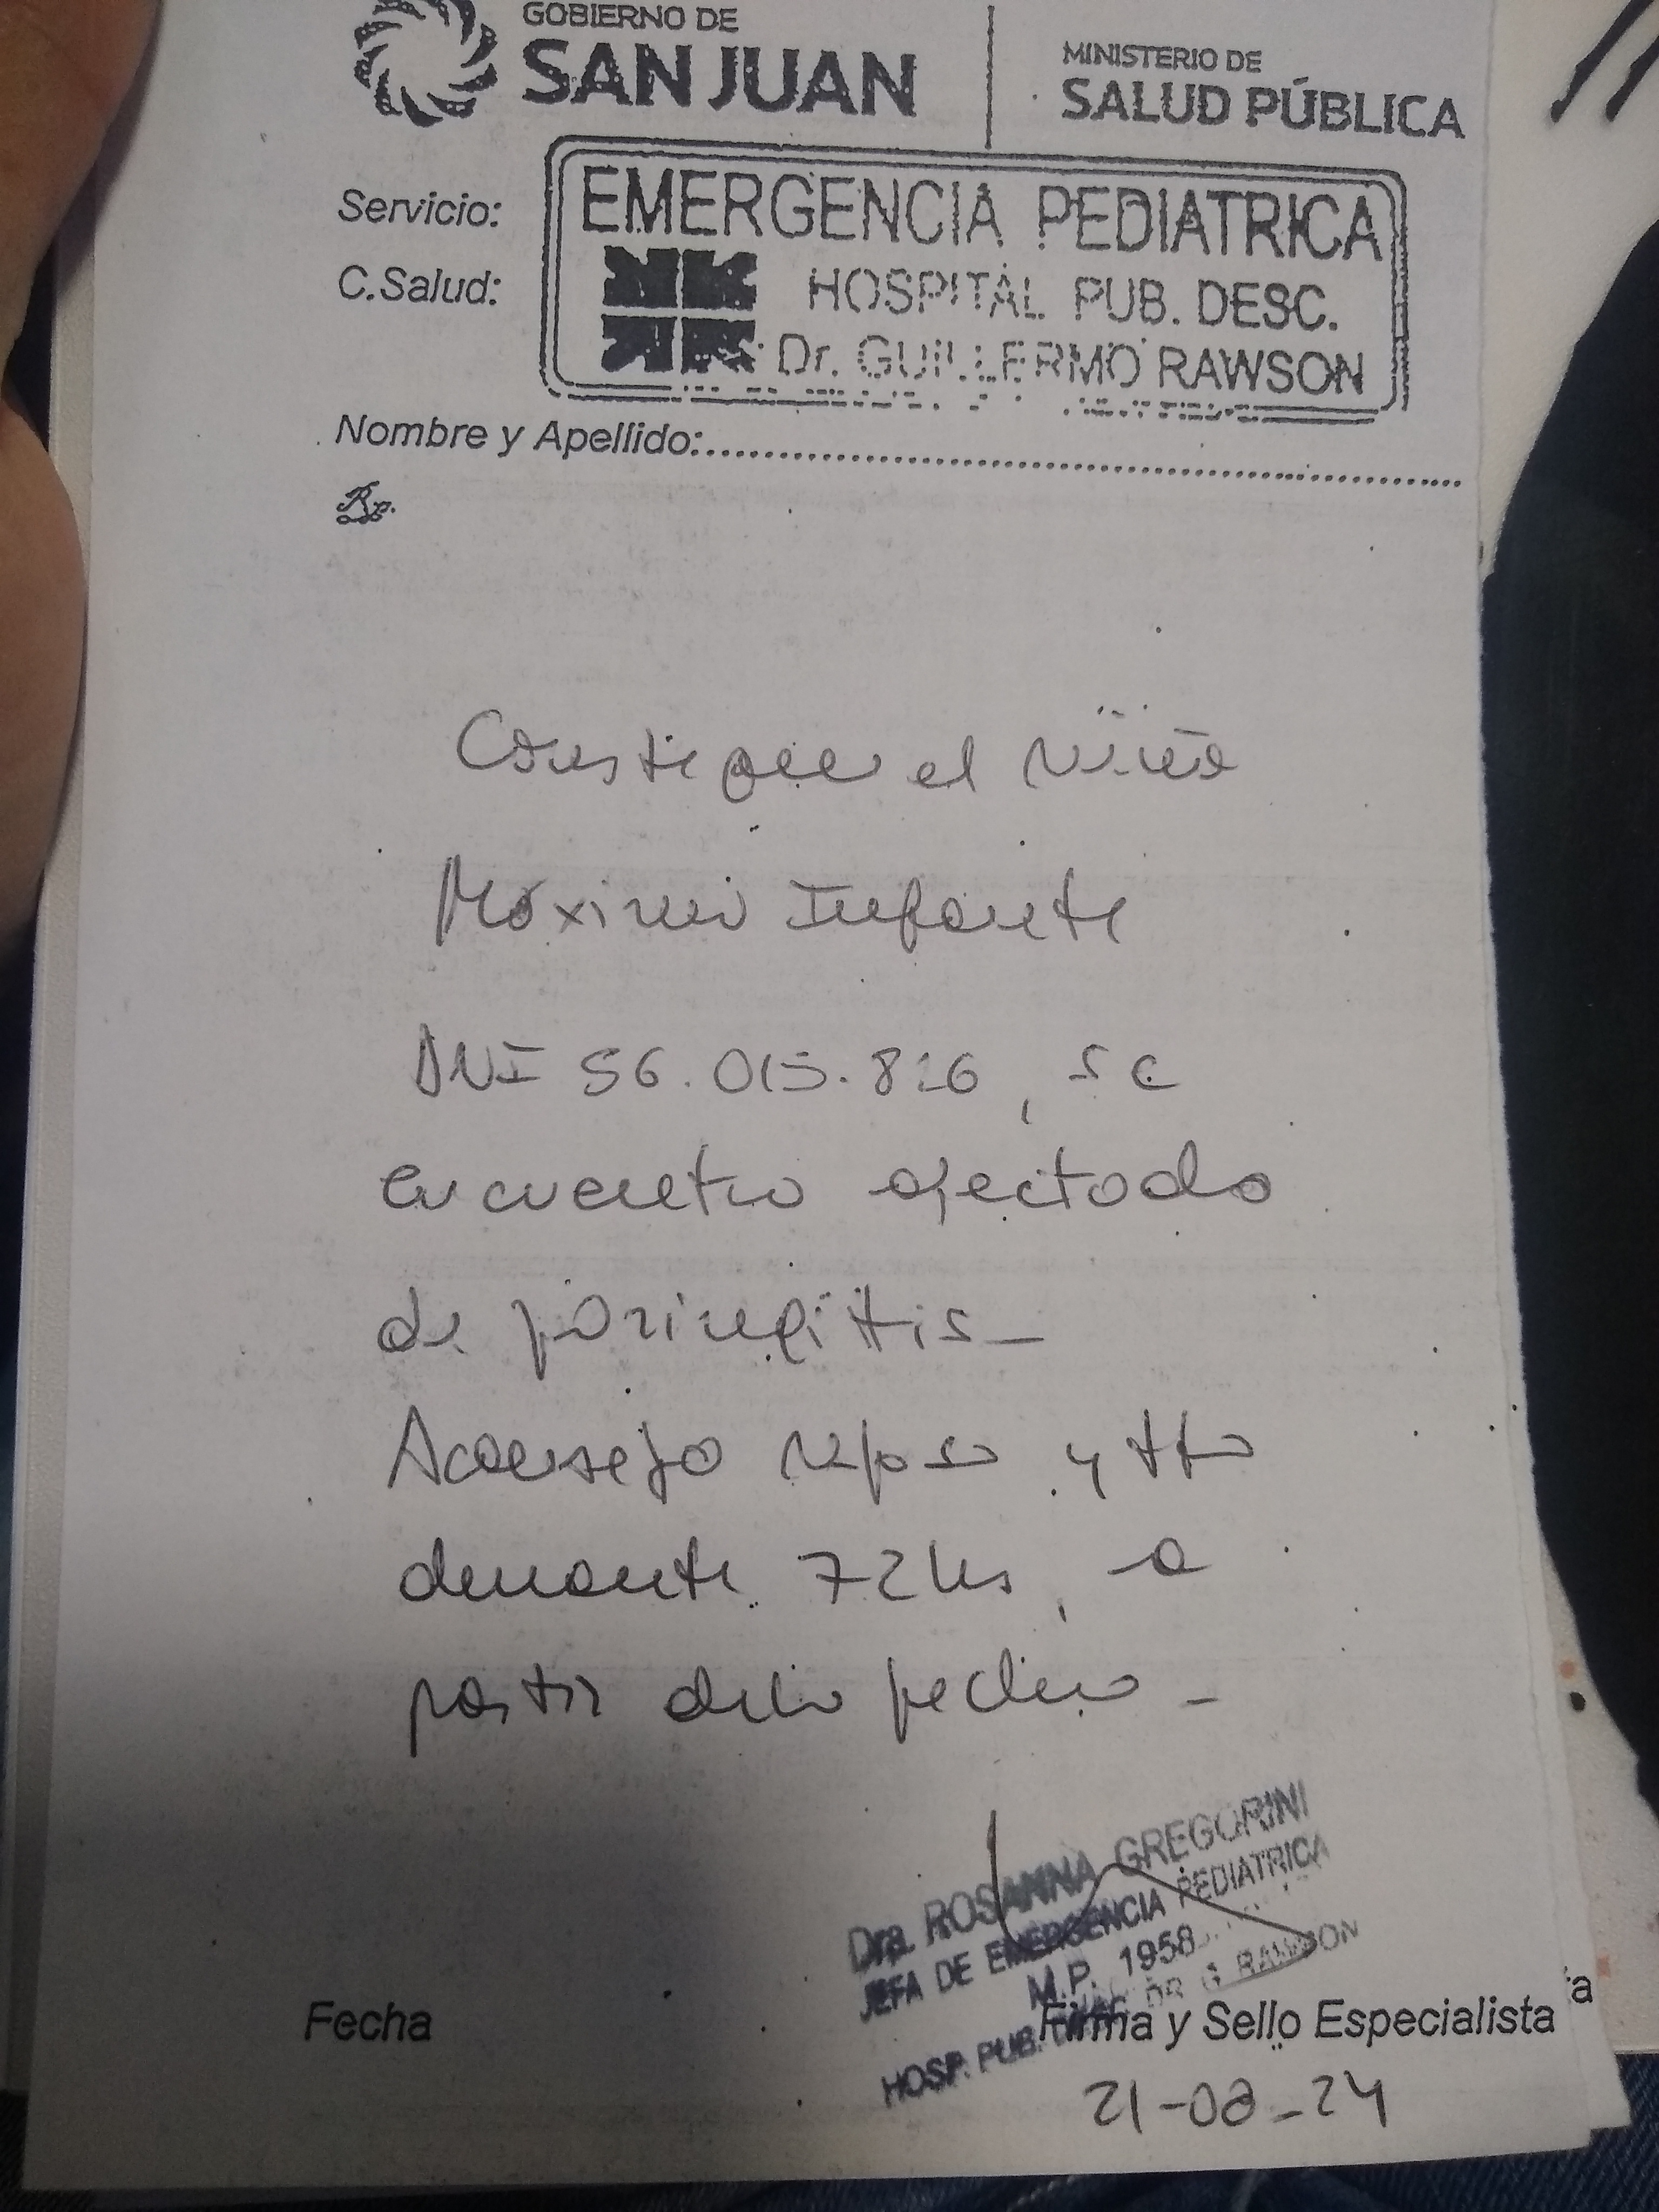 GOBIERNO DE
SAN JUAN
MINISTERIO DE
SALUD PÚBLICA
Servicio:
C.Salud:
EMERGENCIA PEDIATRICA
HOSPITAL PUB. DESC.
Dr. GUILLERMO RAWSON
Nombre y Apellido:
Rp.
Consti que el niño
Máximo Infante
DNI 56.015.826, se
encuentra afectado
de faringitis_
Aconsejo reposo y tto
durante 72hs, a
partir de la fecha_
Dra. ROSANNA GREGORINI
JEFA DE EMERGENCIA PEDIATRICA
M.P. 1958
HOSP. PUB. DR G RAWSON
Fecha
Firma y Sello Especialista
a
21-08-24